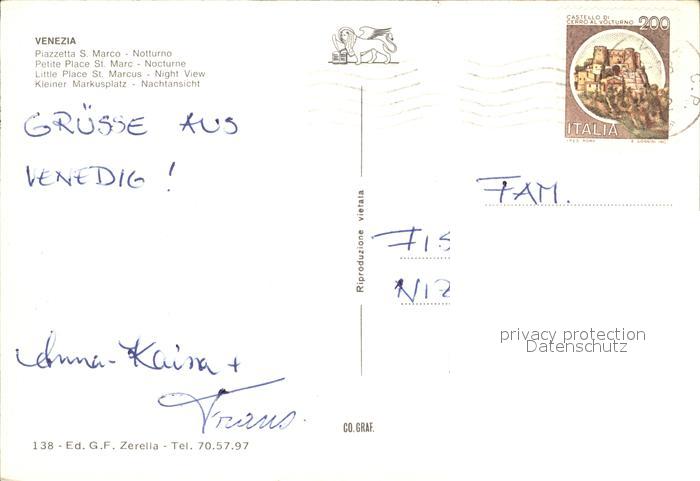 VENEZIA
Piazzetta S. Marco - Notturno
Petite Place St. Marc - Nocturne
Little Place St. Marcus - Night View
Kleiner Markusplatz - Nachtansicht
CASTELLO DI
CERRO AL VOLTURNO 200
ITALIA
GRÜSSE AUS
VENEDIG !
Riproduzione vietata
FAM.
FIS
NIZ
privacy protection
Datenschutz
Anna-Kaisa +
Frans.
CO. GRAF.
138 - Ed. G.F. Zerella - Tel. 70.57.97